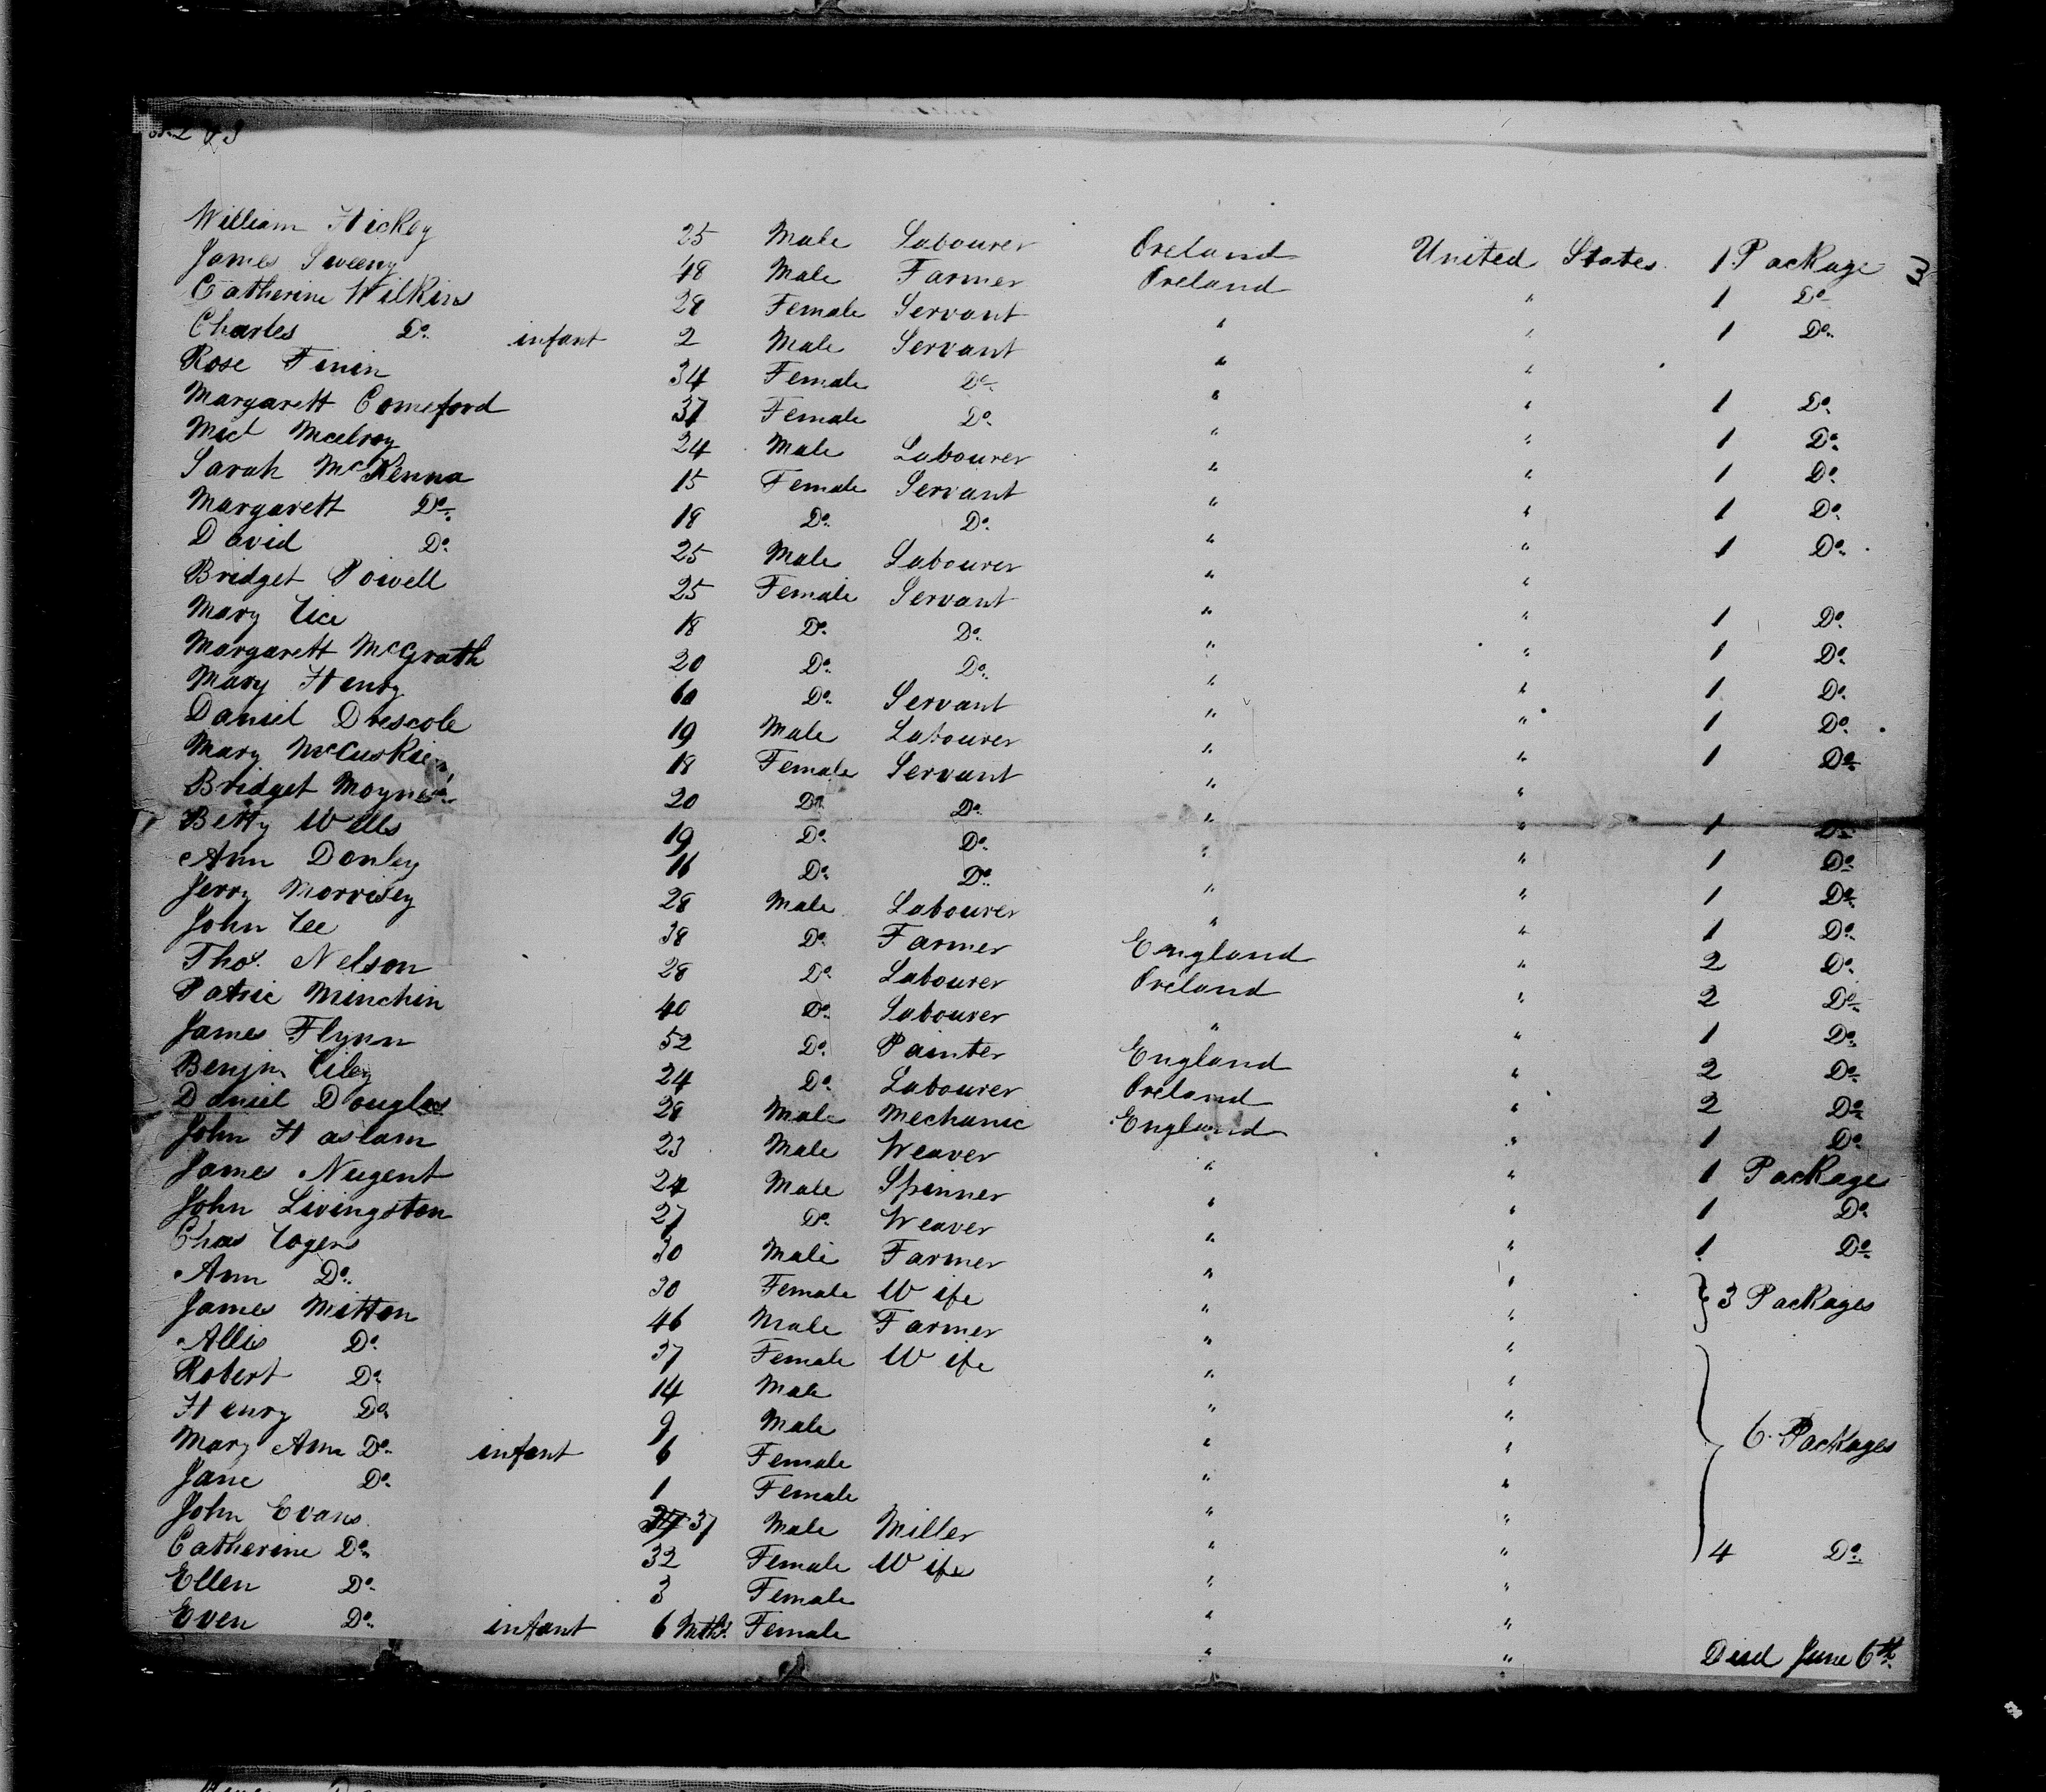 William Hickey 25 Male Labourer Ireland United States 1 Package 3
James Sweeny 48 Male Farmer Ireland " 1 Do
Catherine Wilkins 28 Female Servant " " 1 Do
Charles Do infant 2 Male Servant " "
Rose Finin 34 Female Do " " 1 Do
Margarett Comeford 37 Female Do " " 1 Do
Mict Mcelroy 24 Male Labourer " " 1 Do
Sarah McKenna 15 Female Servant " " 1 Do
Margarett Do 18 Do Do " " 1 Do
David Do 25 Male Labourer " "
Bridget Powell 25 Female Servant " " 1 Do
Mary 18 Do Do " " 1 Do
Margarett McGrath 20 Do Do " " 1 Do
Mary Henry 60 Do Servant " " 1 Do
Daniel Drescole 19 Male Labourer " " 1 Do
Mary 18 Female Servant " "
Bridget 20 Do Do " " 1 Do
Betty Wells 19 Do Do " " 1 Do
Ann Donley 16 Do Do " " 1 Do
Jerry Morrisey 28 Male Labourer " " 1 Do
John Lee 38 Do Farmer England " 2 Do
Thos. Nelson 28 Do Labourer Ireland " 2 Do
Patric Minchin 40 Do Labourer " " 1 Do
James Flynn 52 Do Painter England " 2 Do
Benjn Riley 24 Do Labourer Ireland " 2 Do
Daniel Douglas 28 Male Mechanic England " 1 Do
John Haslam 23 Male Weaver " " 1 Package
James Nugent 24 Male Spinner " " 1 Do
John Livingston 27 Do Weaver " " 1 Do
Chas Rogers 30 Male Farmer " " 3 Packages
Ann Do 30 Female Wife " "
James Mitton 46 Male Farmer " "
Allis Do 37 Female Wife " "
Robert Do 14 Male " " 6 Packages
Henry Do 9 Male " "
Mary Ann Do infant 6 Female " "
Jane Do 1 Female " "
John Evans 37 Male Miller " " 4 Do
Catherine Do 32 Female Wife " "
Ellen Do 3 Female " "
Even Do infant 6 Mths Female " " Died June 6th